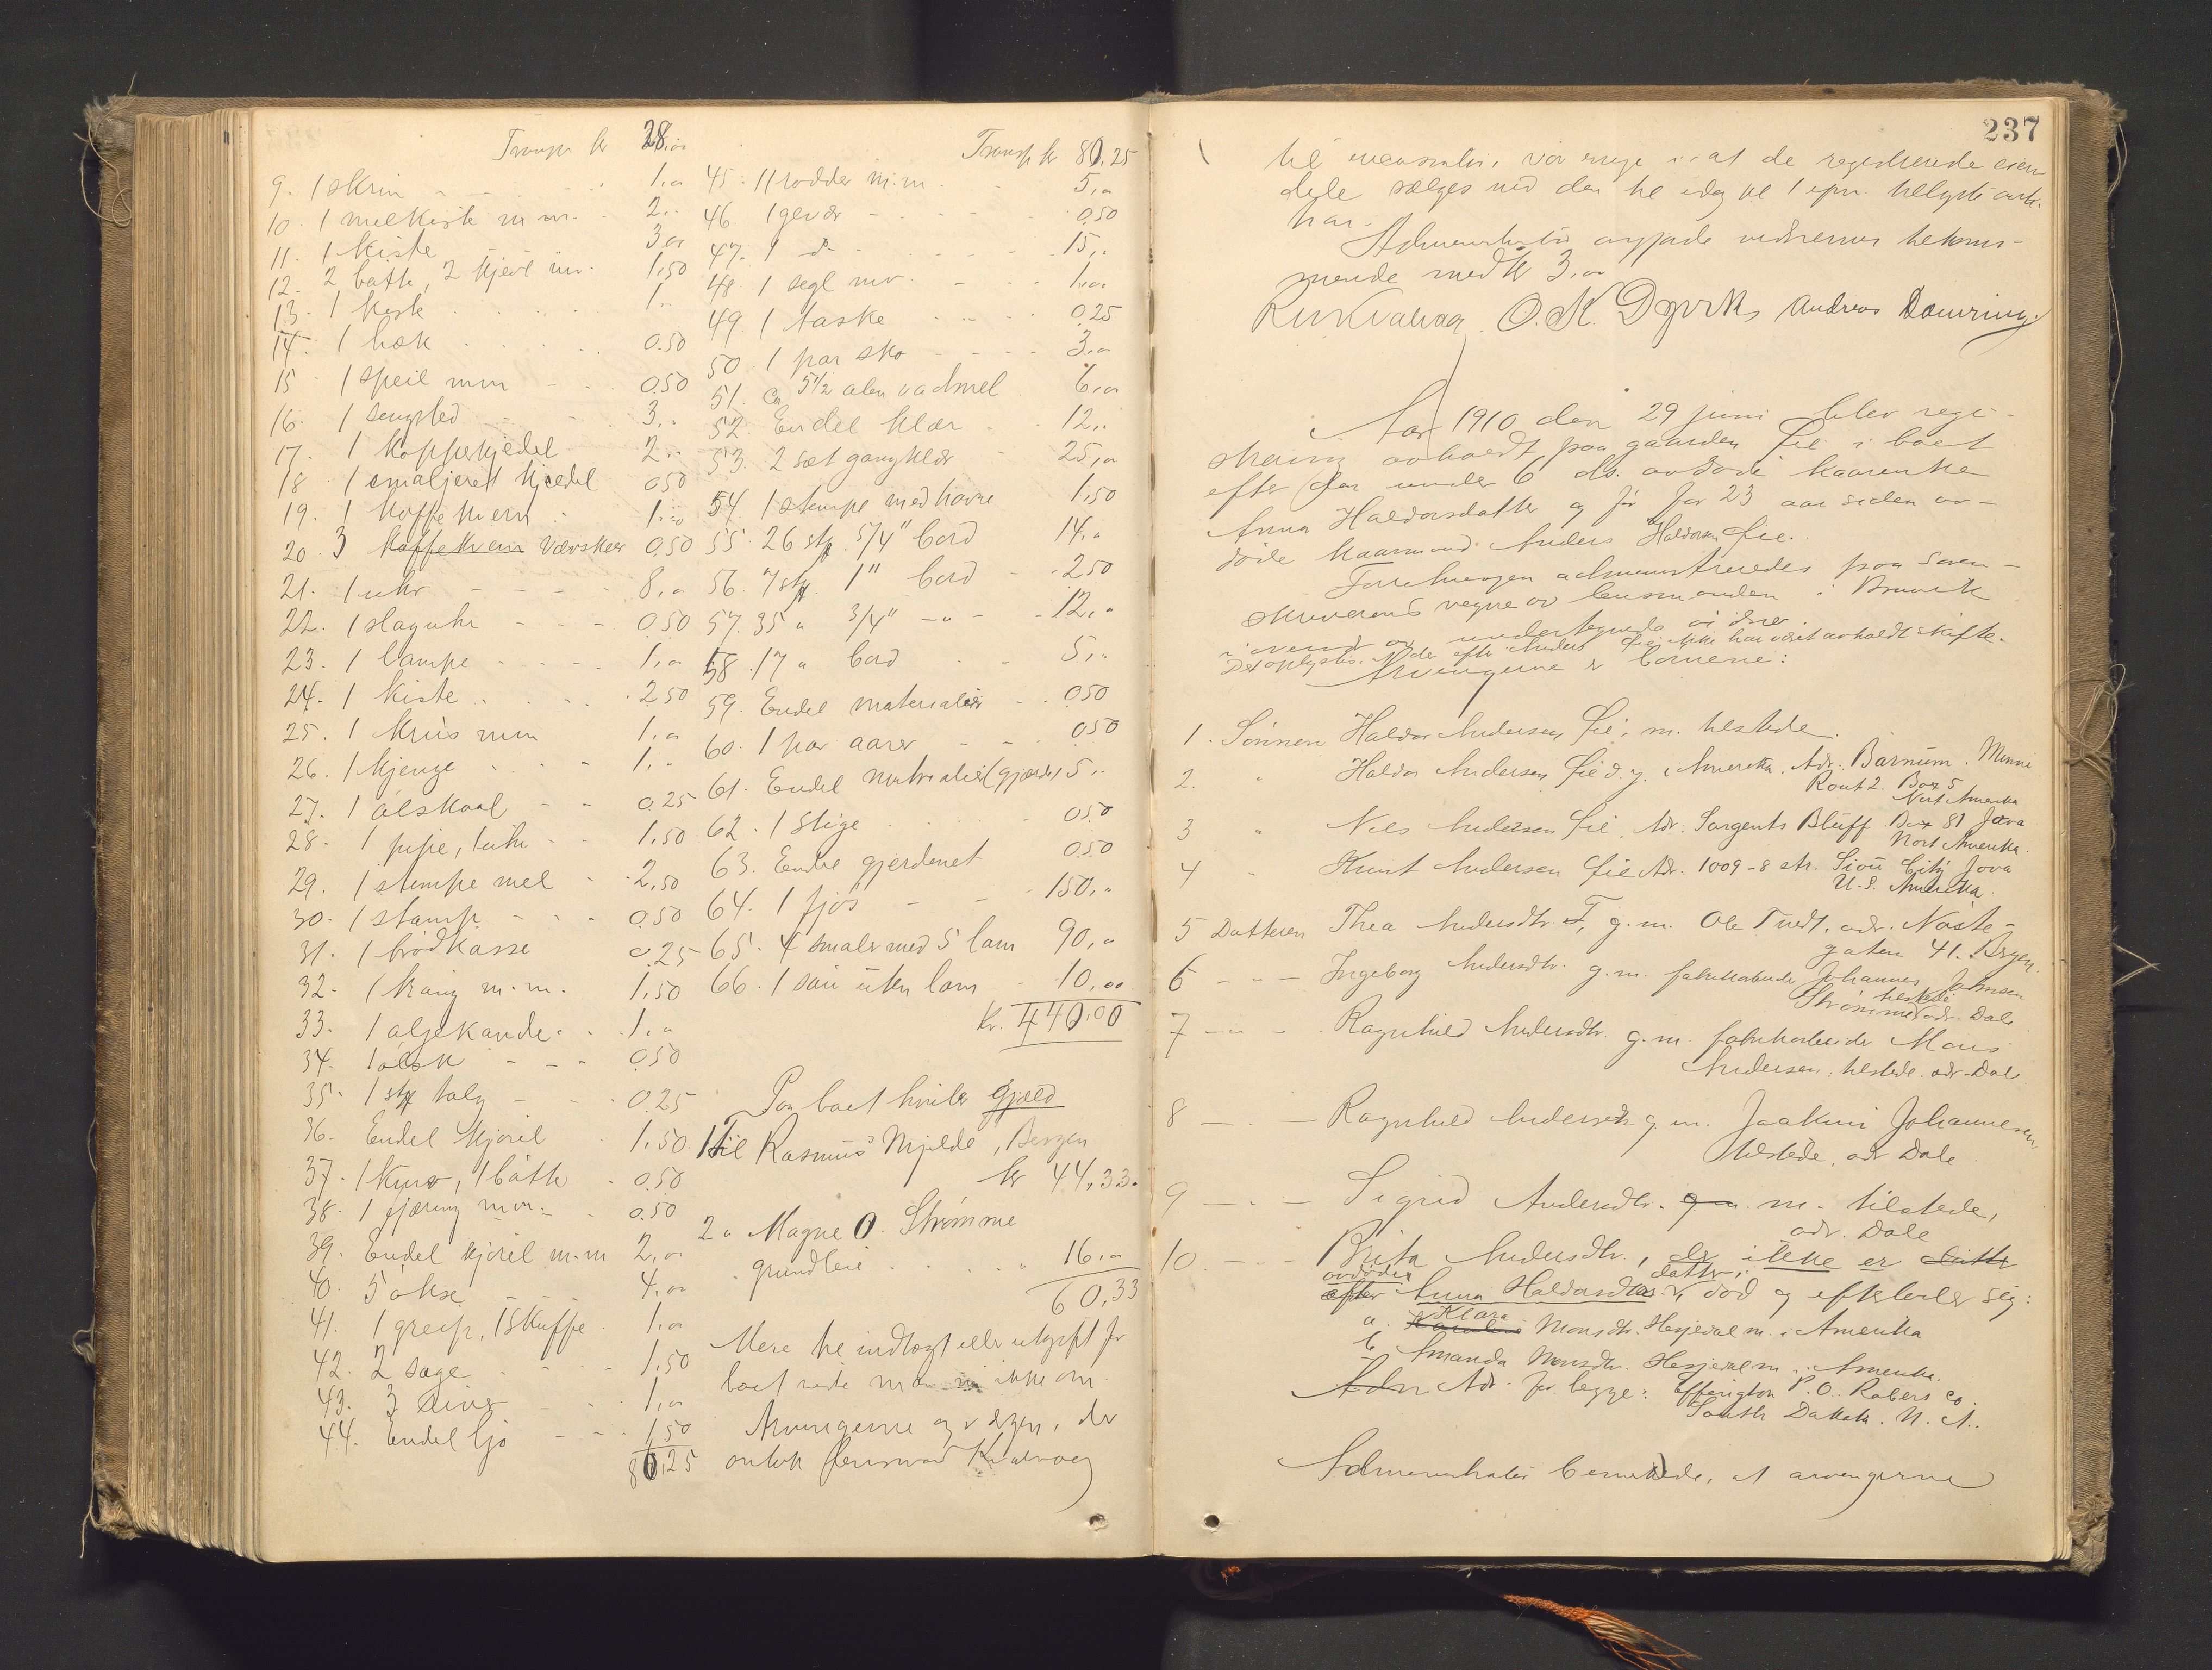 Transp kr 28,00
9. 1 skrin 1,00
10. 1 melkiste m.m. 2,,
11. 1 kiste 3,00
12. 2 bøtte, 2 kjevl mv. 1,50
13. 1 kiste 1,,
14. 1 hæk 0.50
15. 1 speil m.m 0.50
16. 1 sengsted 3,,
17. 1 kopperkjedel 2,,
18. 1 emaljeret kjedel 0.50
19. 1 Koffekvern 1,00
20. 3 kaffekvern Vævskeer 0,50
21. 1 uhr 8,00
22. 1 slaguhr 0.50
23. 1 lampe 1,00
24. 1 kiste 2.50
25. 1 krus m.m 1,00
26. 1 kjenge 1,,
27. 1 ølskaal 0.25
28. 1 pipe, 1 uhr 1,50
29. 1 stempe mel 2,50
30. 1 stamp 0.50
31. 1 brødkasse 0.25
32. 1 krang m.m. 1,50
33. 1 oljekande 1,00
34. 1 0.50
35. 1 stk talg 0.25
36. Endel kjøril 1,50.
37. 1 kurv, 1 bøtte 0.50
38. 1 gjæring m.m. 0.50
39. Endel kjøril m.m 2,00
40. 5 økse 4,00
41. 1 greip, 1 skuffe 1,00
42. 2 sage 1.50
43. 3 1,00
44. Endel ljø 1,50
80,25
Transp kr 80,25
45. 11 rodder m.m. 5,00
46. 1 gevær 0.50
47. 1 do 15,,
48. 1 segl mv. 1,00
49. 1 taske 0.25
50. 1 par sko 3,00
51. Ca 5½ alen vadmel 6,00
52. Endel klær 12,,
53. 2 sæt gangklær 25,00
54 1 stempe med havre 1,50
55. 26 stk. 5/4" bord 14,00
56. 7 stk. 1" bord 2.50
57. 35 " 3/4" -"- 12,00
58. 17 " bord 5,,
59. Endel materialier 0.50
60. 1 par aarer 0.50
61. Endel materialier (gjærde) 5,,
62. 1 stige 0.50
63. Endel gjerdenet 0.50
64. 1 fjøs 150,,
65. 4 smaler med 5 lam 90,00
66. 1 sau uten lam 10,00
kr. 440,00
Paa boet hviler gjæld
1 til Rasmus Mjelde, Bergen
kr 44,33.
2 " Magne O. Strømme
grundleie 16,00
60,33
Mere til indtægt eller utgift for
boet viste man ikke om.
Arvingerne og vergen, der
Kvalvaag
237
til var enige i at de registrerede eien
dele sælges ved den til idag kl 1 epm. tillyste auk-
tion.
Administrator avgjorde vidnernes tilkom-
mende med kr 3,00
O. K. Dyvik Andreas Daurring.
Aar 1910 den 29 juni blev regi-
strering avholdt paa gaarden Fie i boet
efter den under 6 ds. avdøde kaarenke
Anna Haldorsdatter og før for 23 aar siden av-
døde kaarmand Anders Haldorsen Fie.
Forretningen administreredes paa soren-
skriverens vegne av lensmanden i Bruvik
i nerver av undertegnede vidner.
Det oplystes at der efter Anders Fie ikke har været avholdt skifte.
Arvingerne er børnene:
1. Sønnen Haldor Andersen Fie, m. tilstede.
2. " Haldor Andersen Fie d.y. i Amerika. Adr. Barnum. Minni
Rout 2. Box 5
Nort Amerika
3 " Nils Andersen Fie Adr. Sargents Bluff Box 81 Jova
Nort Amerika.
4 " Knut Andersen Fie Adr. 1009-8 str. Siou City Jova
U.S. Amerika.
5 Datteren Thea Andersdtr. g.m. Ole Tvedt, adr. Nøste-
gaten 41. Bergen.
6 - " - Ingeborg Andersdtr. g.m. fabrikarbeider Johannes Johnsen
Strømme tilstede adr. Dale
7 - " - Ragnhild Andersdtr. g.m. fabrikarbeider Mons
Andersen, tilstede. adr. Dale.
8 - " - Ragnhild Andersdtr g.m. Joakim Johannesen,
tilstede, adr Dale.
9 - " - Sigrid Andersdtr. g.m. m. tilstede,
adr. Dale
10 - " - Brita Andersdtr., der ikke er datter
avdøde efter Anna Haldorsdtrs datter, død og efterlader sig:
a. Karoline Klara Monsdtr. Hesjedal m. i Amerika
b. Amanda Monsdtr. Hesjedal m. i Amerika.
Adm Adr. for begge: Effington P.O. Robers Co.
South Dakota. N. A.
Administrator bemerkede, at arvingerne